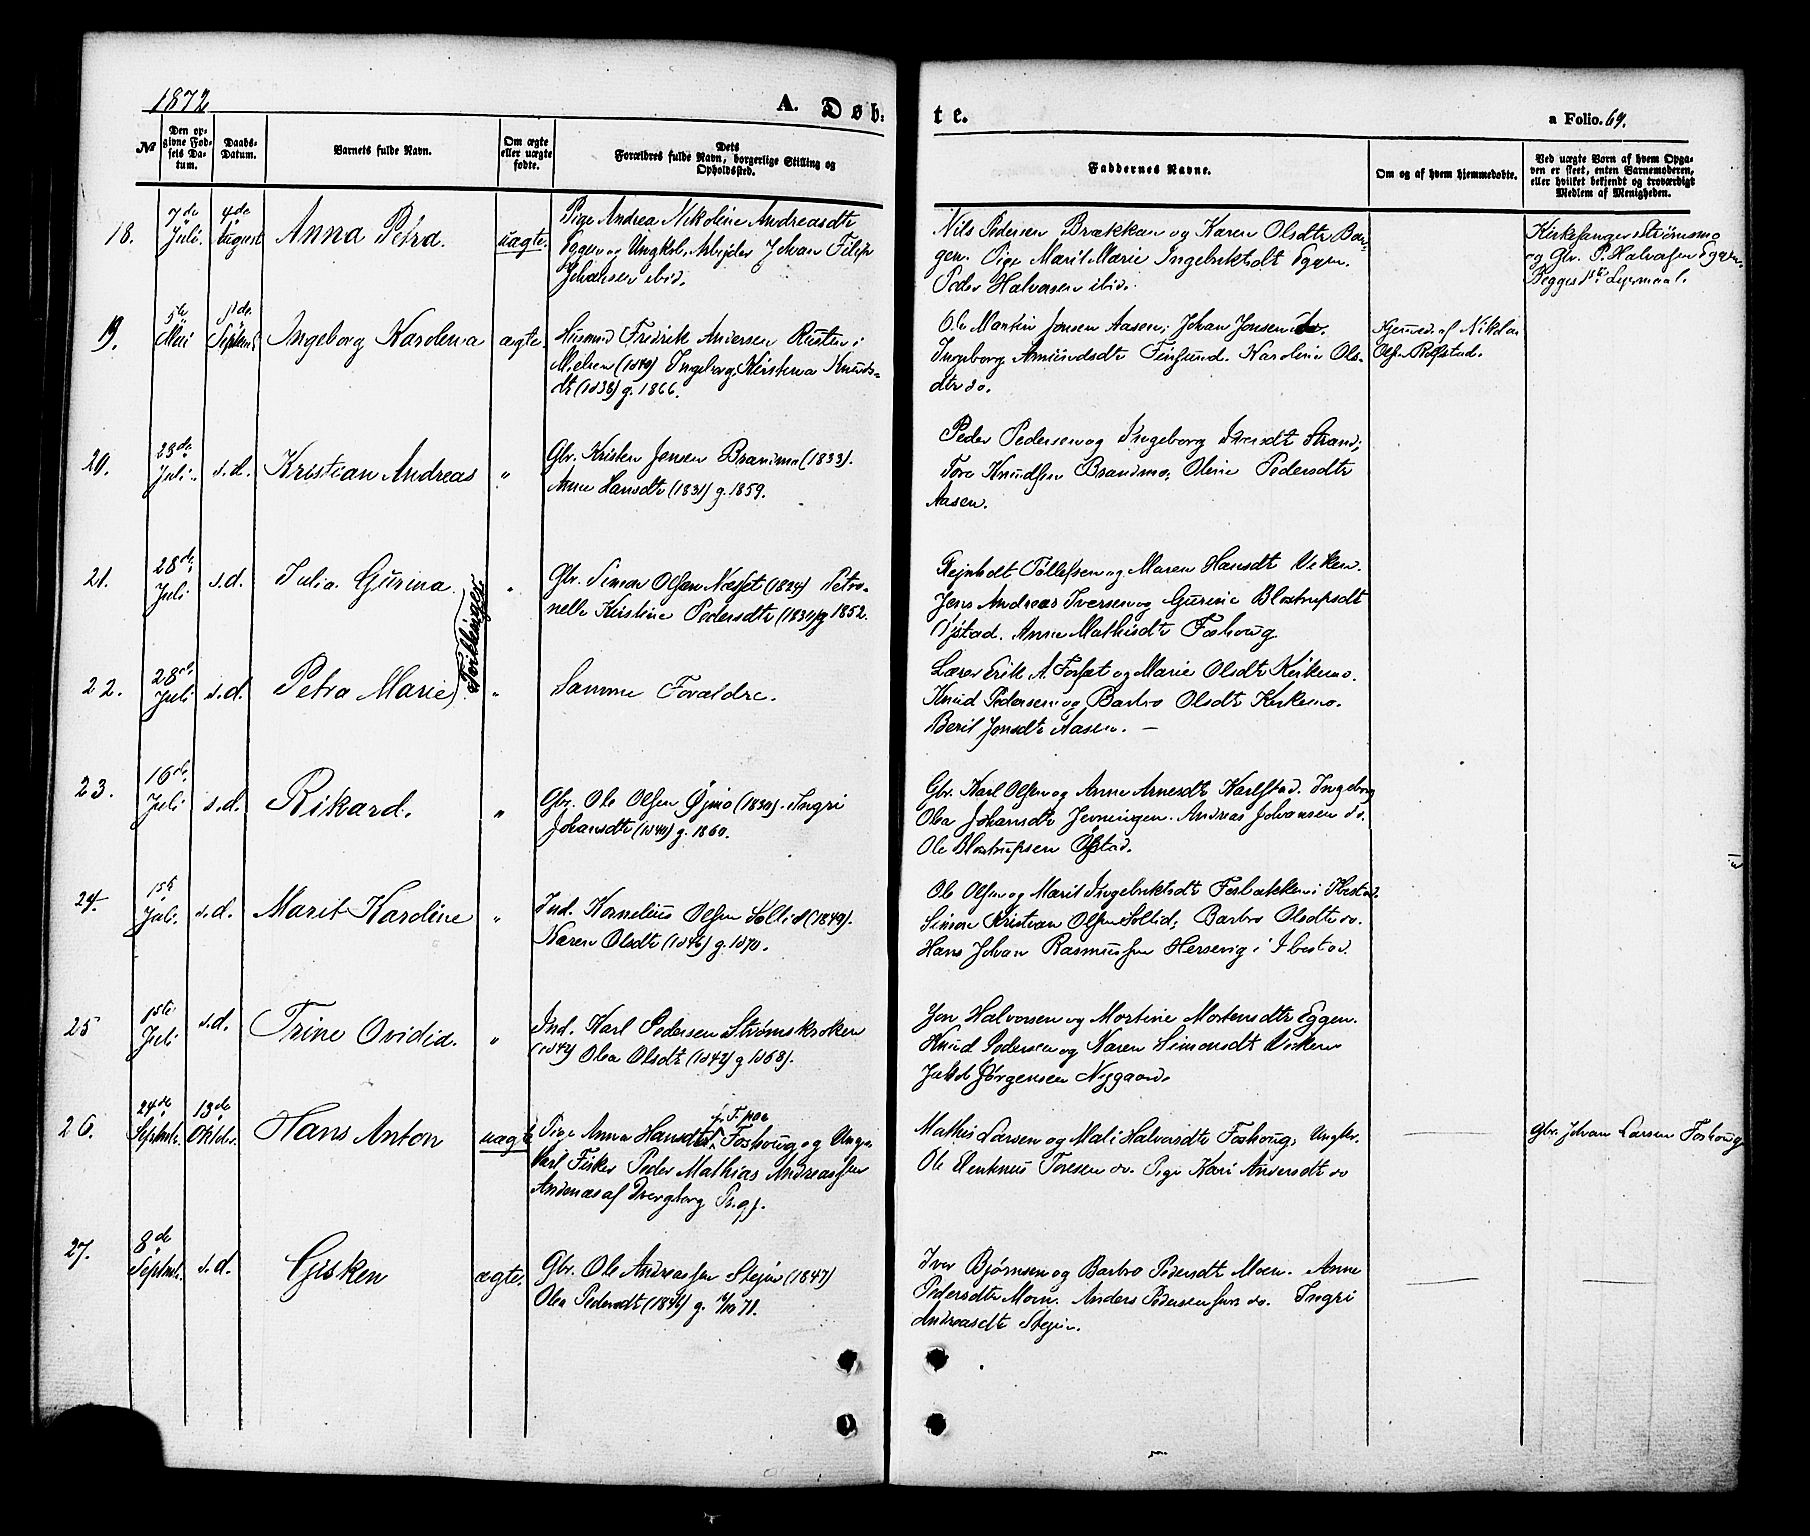 1872
A. Døb-
te.
a Folio. 69.
№
Den op-
givne Fød-
sels Da-
tum.
Daabs-
Datum.
Barnets fulde Navn.
Om ægte
eller uægte
fødte.
Dets
Forældres fulde Navn, borgerlige Stilling og
Opholdssted.
Faddernes Navne.
Om og af hvem hjemmedøbte.
Ved uægte Børn af hvem Opga-
ven er skeet, enten Barnemoderen,
eller hvilket bekjendt og troværdigt
Medlem af Menigheden.
18.
7de
Juli.
4de
August
Anna Petra.
uægte.
Pige Andrea Nikoline Andreasdtr
Eggen og Ungkol. Arbejder Johan Filip
Johansen ibid.
Nils Pedersen Brækkan og Karen Olsdtr Bør-
gen. Pige Marit Marie Ingebriktsdt Eggen.
Peder Halvorsen ibid.
Kirkesanger Strømsmo
og Gbr. P. Halvorsen Eggen.
Begges 1ste Lejermaal.
19.
5te
Mai
1ste
Septemb.
Ingeborg Karolena
ægte.
Husmd Fredrik Andersen Rusten i
Moelven (1840) Ingeborg Kirstena Knuds-
dt (1838) g. 1866.
Ole Martin Jonsen Aasen; Johan Jonsen do.
Ingeborg Amundsdt Finsund. Karoline Ols-
dtr do.
Hjemmed. af Nikolai
Olsen Rolfstad.
20.
28de
Juli.
s.d.
Kristian Andreas
"
Gbr. Kristen Jensen Brandmo (1833).
Anne Hansdt (1831) g. 1859.
Peder Pedersen og Ingeborg Iversdt Strand;
Tore Knudsen Brandmo; Oline Pedersdtr
Aasen.
21.
28de
Juli
s.d.
Julia Gurina.
Tvillinger
"
Gbr. Simon Olsen Næsset (1824) Petro-
nelle Kirstine Pedersdtr (1831) g. 1852.
Rejnholdt Tollefsen og Maren Hansdt Viken.
Jens Andreas Iversen og Gurine Blostrupsdt
Øjstad. Anne Mathisdt Foshoug
22.
28de
Juli
s.d.
Petra Marie
"
Samme Forældre.
Lærer Erik A. Forsæt og Marie Olsdt Kirkemo.
Knud Pedersen og Barbro Olsdt Kirkemo.
Berit Jonsdt Aasen. —
23.
16de
Juli
s.d.
Rikard.
"
Gbr. Ole Olsen Øjmo (1830). Ingri
Johansdt (1840) g. 1860.
Gbr. Karl Olsen og Anne Arnesdt Karlstad. Ingeborg
Olea Johansdt Jevningen. Andreas Johansen do.
Ole Blostrupsen Øjstad.
24.
15de
Juli.
s.d.
Marit Karoline
"
Ind. Kornelius Olsen Solli d (1849).
Karen Olsdtr (1846) g. 1870.
Ole Olsen og Marit Ingebriktsdt Forbakken i Ibestad.
Simon Kristian Olsen Sollid; Barbro Olsdtr do.
Hans Johan Rasmussen Hersevig i Ibestad.
25
15de
Juli
s.d.
Trine Ovidia.
"
Ind. Karl Pedersen Strømskroken
(1842) Olea Olsdt (1842) g 1868).
Jon Halvorsen og Mortine Mortensdtr Eggen.
Knud Pedersen og Karen Simonsdt Viken
Jakob Jørgensen Nygaard.
26.
24de
Septemb.
13de
Oktober.
Hans Anton
uægte
Pige Anna Hansdtr f. T. paa Foshoug og Ung-
karl Fisker Peder Mathias Andreassen
Andenæs af Dverberg Prgj.
Mathis Larsen og Mali Halvorsdt Foshoug; Ungkr.
Ole Elenknus Toresen do. Pige Kari Andersdt do
Gbr. Johan Larsen Foshoug
27.
8de
Septemb.
s.d.
Gisken
ægte.
Gbr. Ole Andreassen Stejen (1847)
Olea Pedersdt (1846) g. 71.
Iver Bjørnsen og Barbro Pedersdt Moen. Anne
Pedersdtr Moen. Anders Pedersen do. Ingri
Andreasdt Stejen.